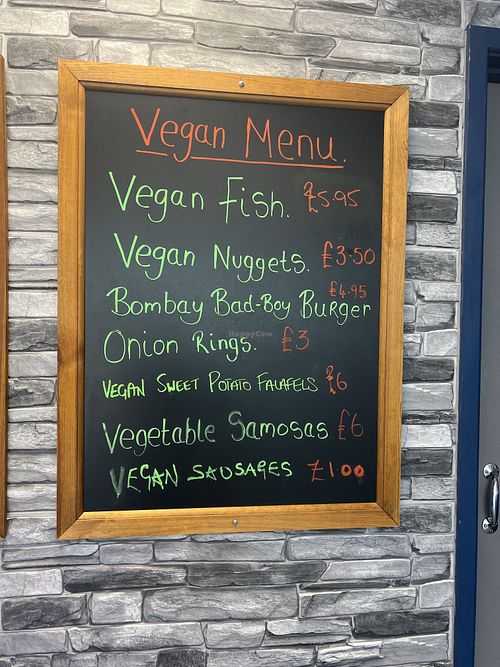 Vegan Menu.
Vegan Fish. £5.95
Vegan Nuggets. £3.50
£4.95
Bombay Bad-Boy Burger
HappyCow
Onion Rings. £3
VEGAN SWEET POTATO FALAFELS £6
Vegetable Samosas £6
VEGAN SAUSAGES £1.00